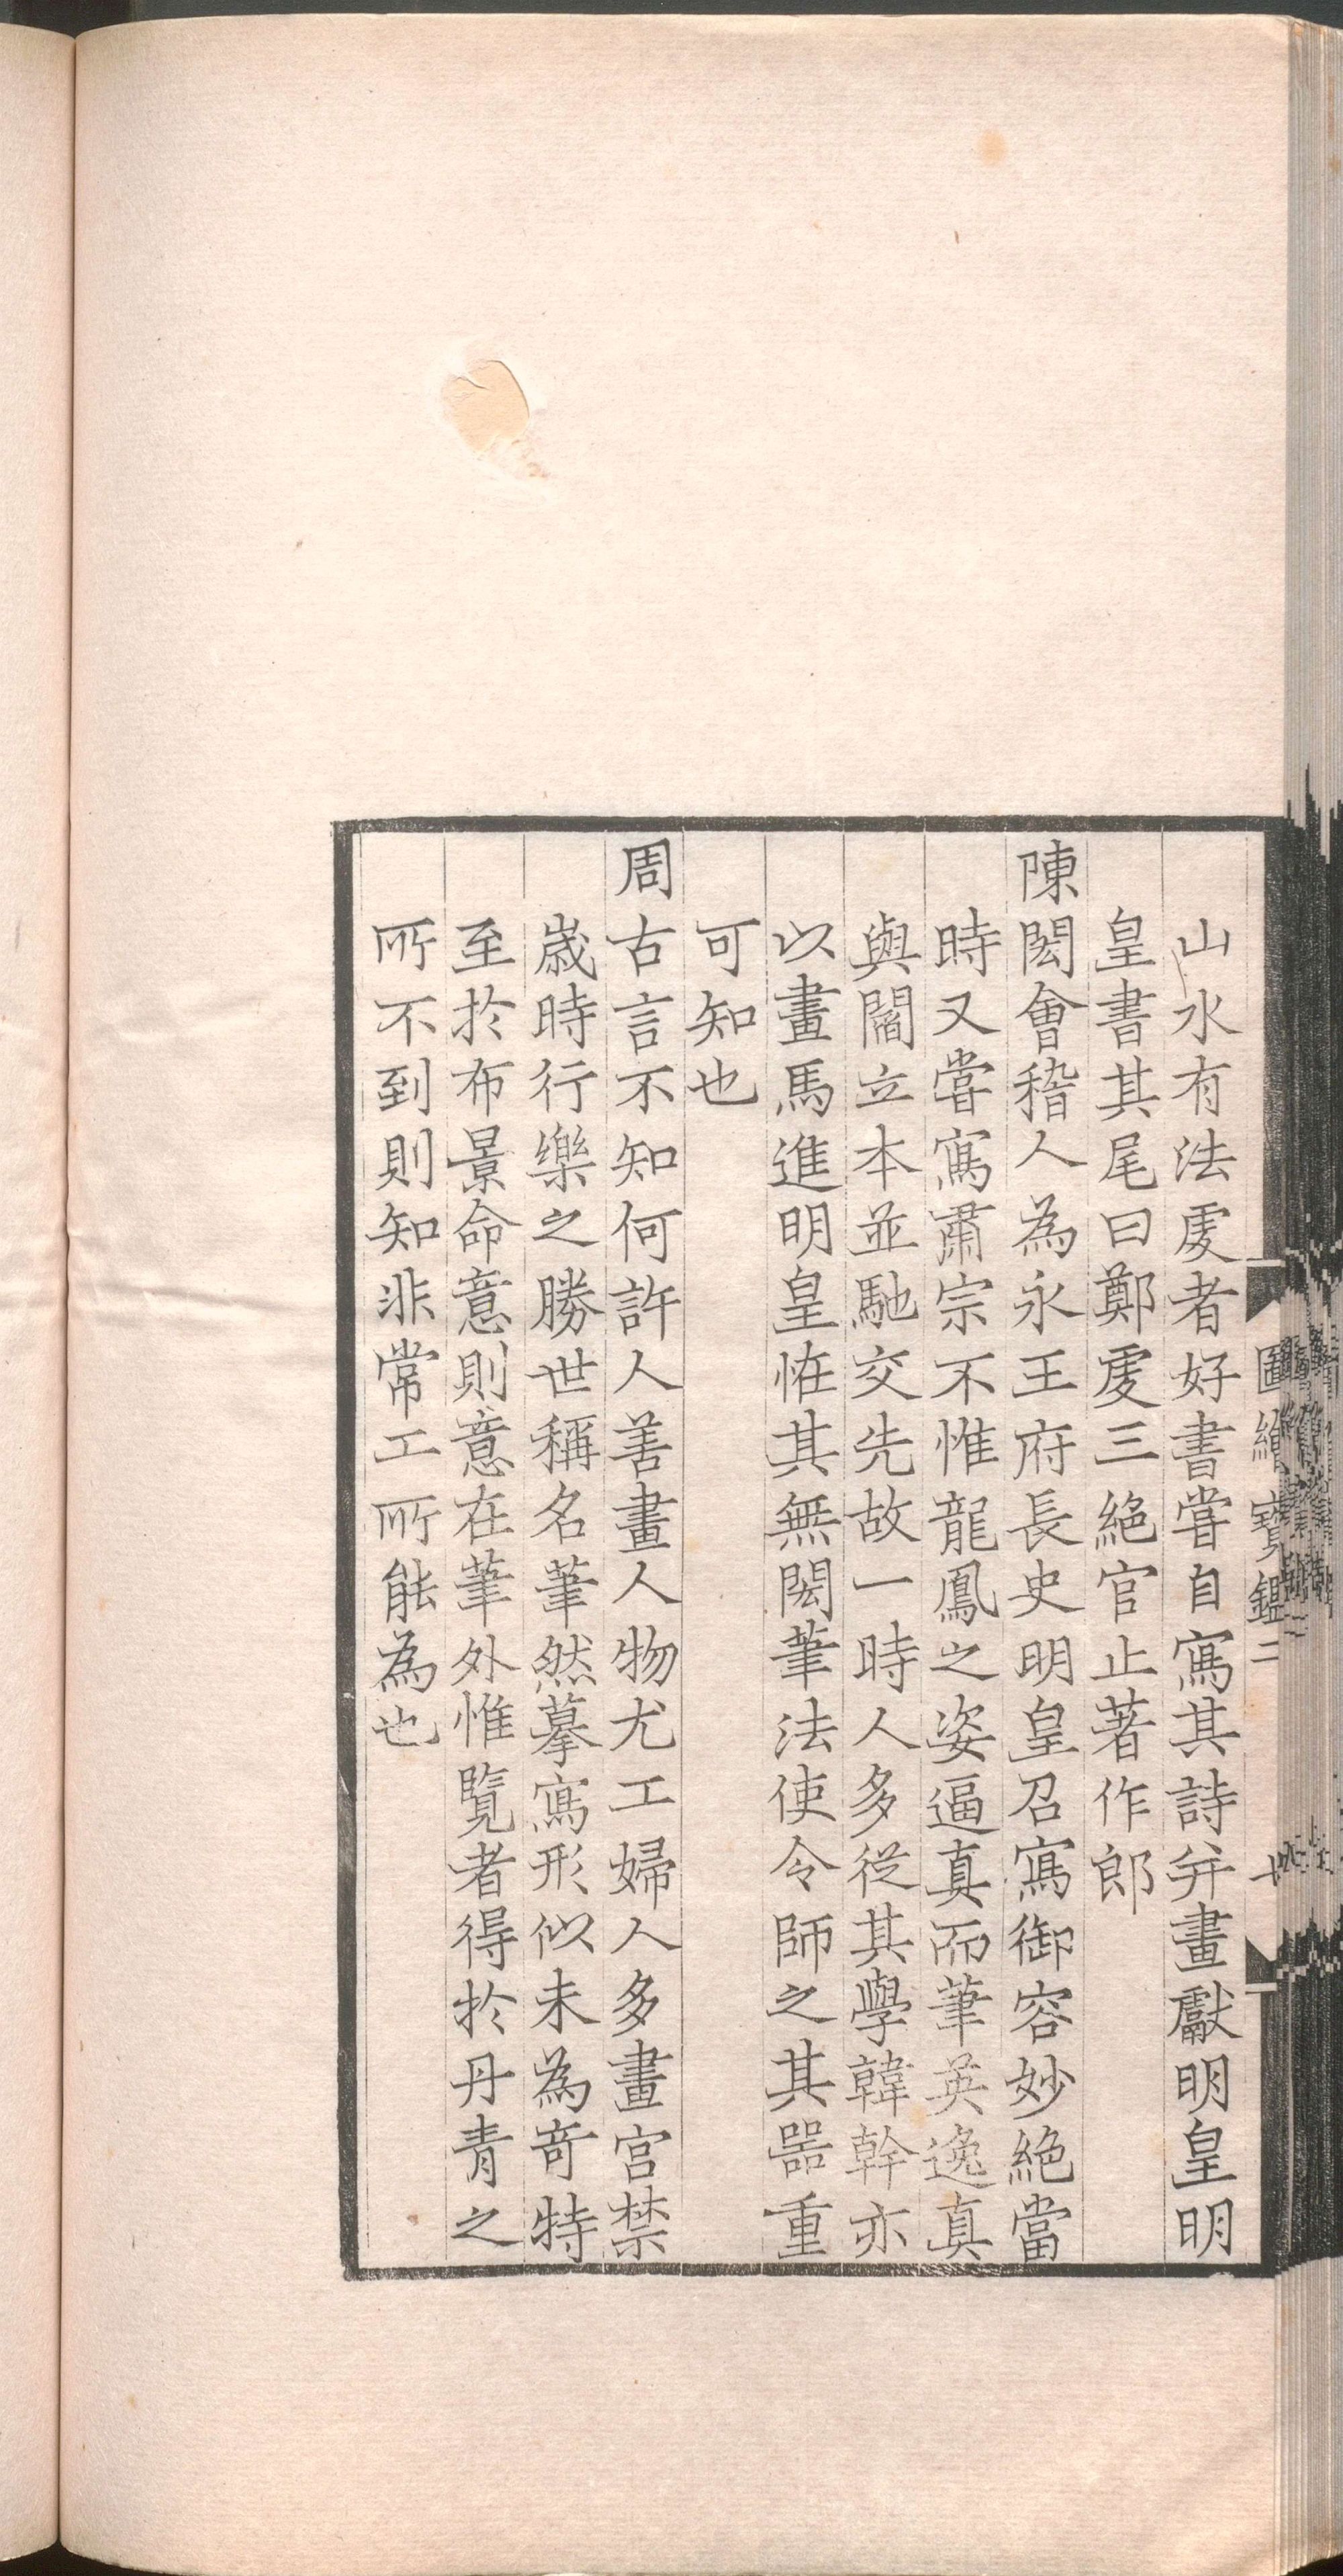 山水有法處者好書嘗自寫其詩并畫獻明皇明
皇書其尾曰鄭虔三絕官止著作郎
陳閎會稽人為永王府長史明皇召寫御容妙絕當
時又嘗寫肅宗不惟龍鳳之姿逼真而筆英逸真
與閻立本並馳交先故一時人多從其學韓幹亦
以畫馬進明皇恠其無閎筆法使令師之其噐重
可知也
周古言不知何許人善畫人物尤工婦人多畫宮禁
歲時行樂之勝世稱名筆然摹寫形似未為奇特
至於布景命意則意在筆外惟覽者得於丹青之
所不到則知非常工所能為也
圖繪寶鑑二